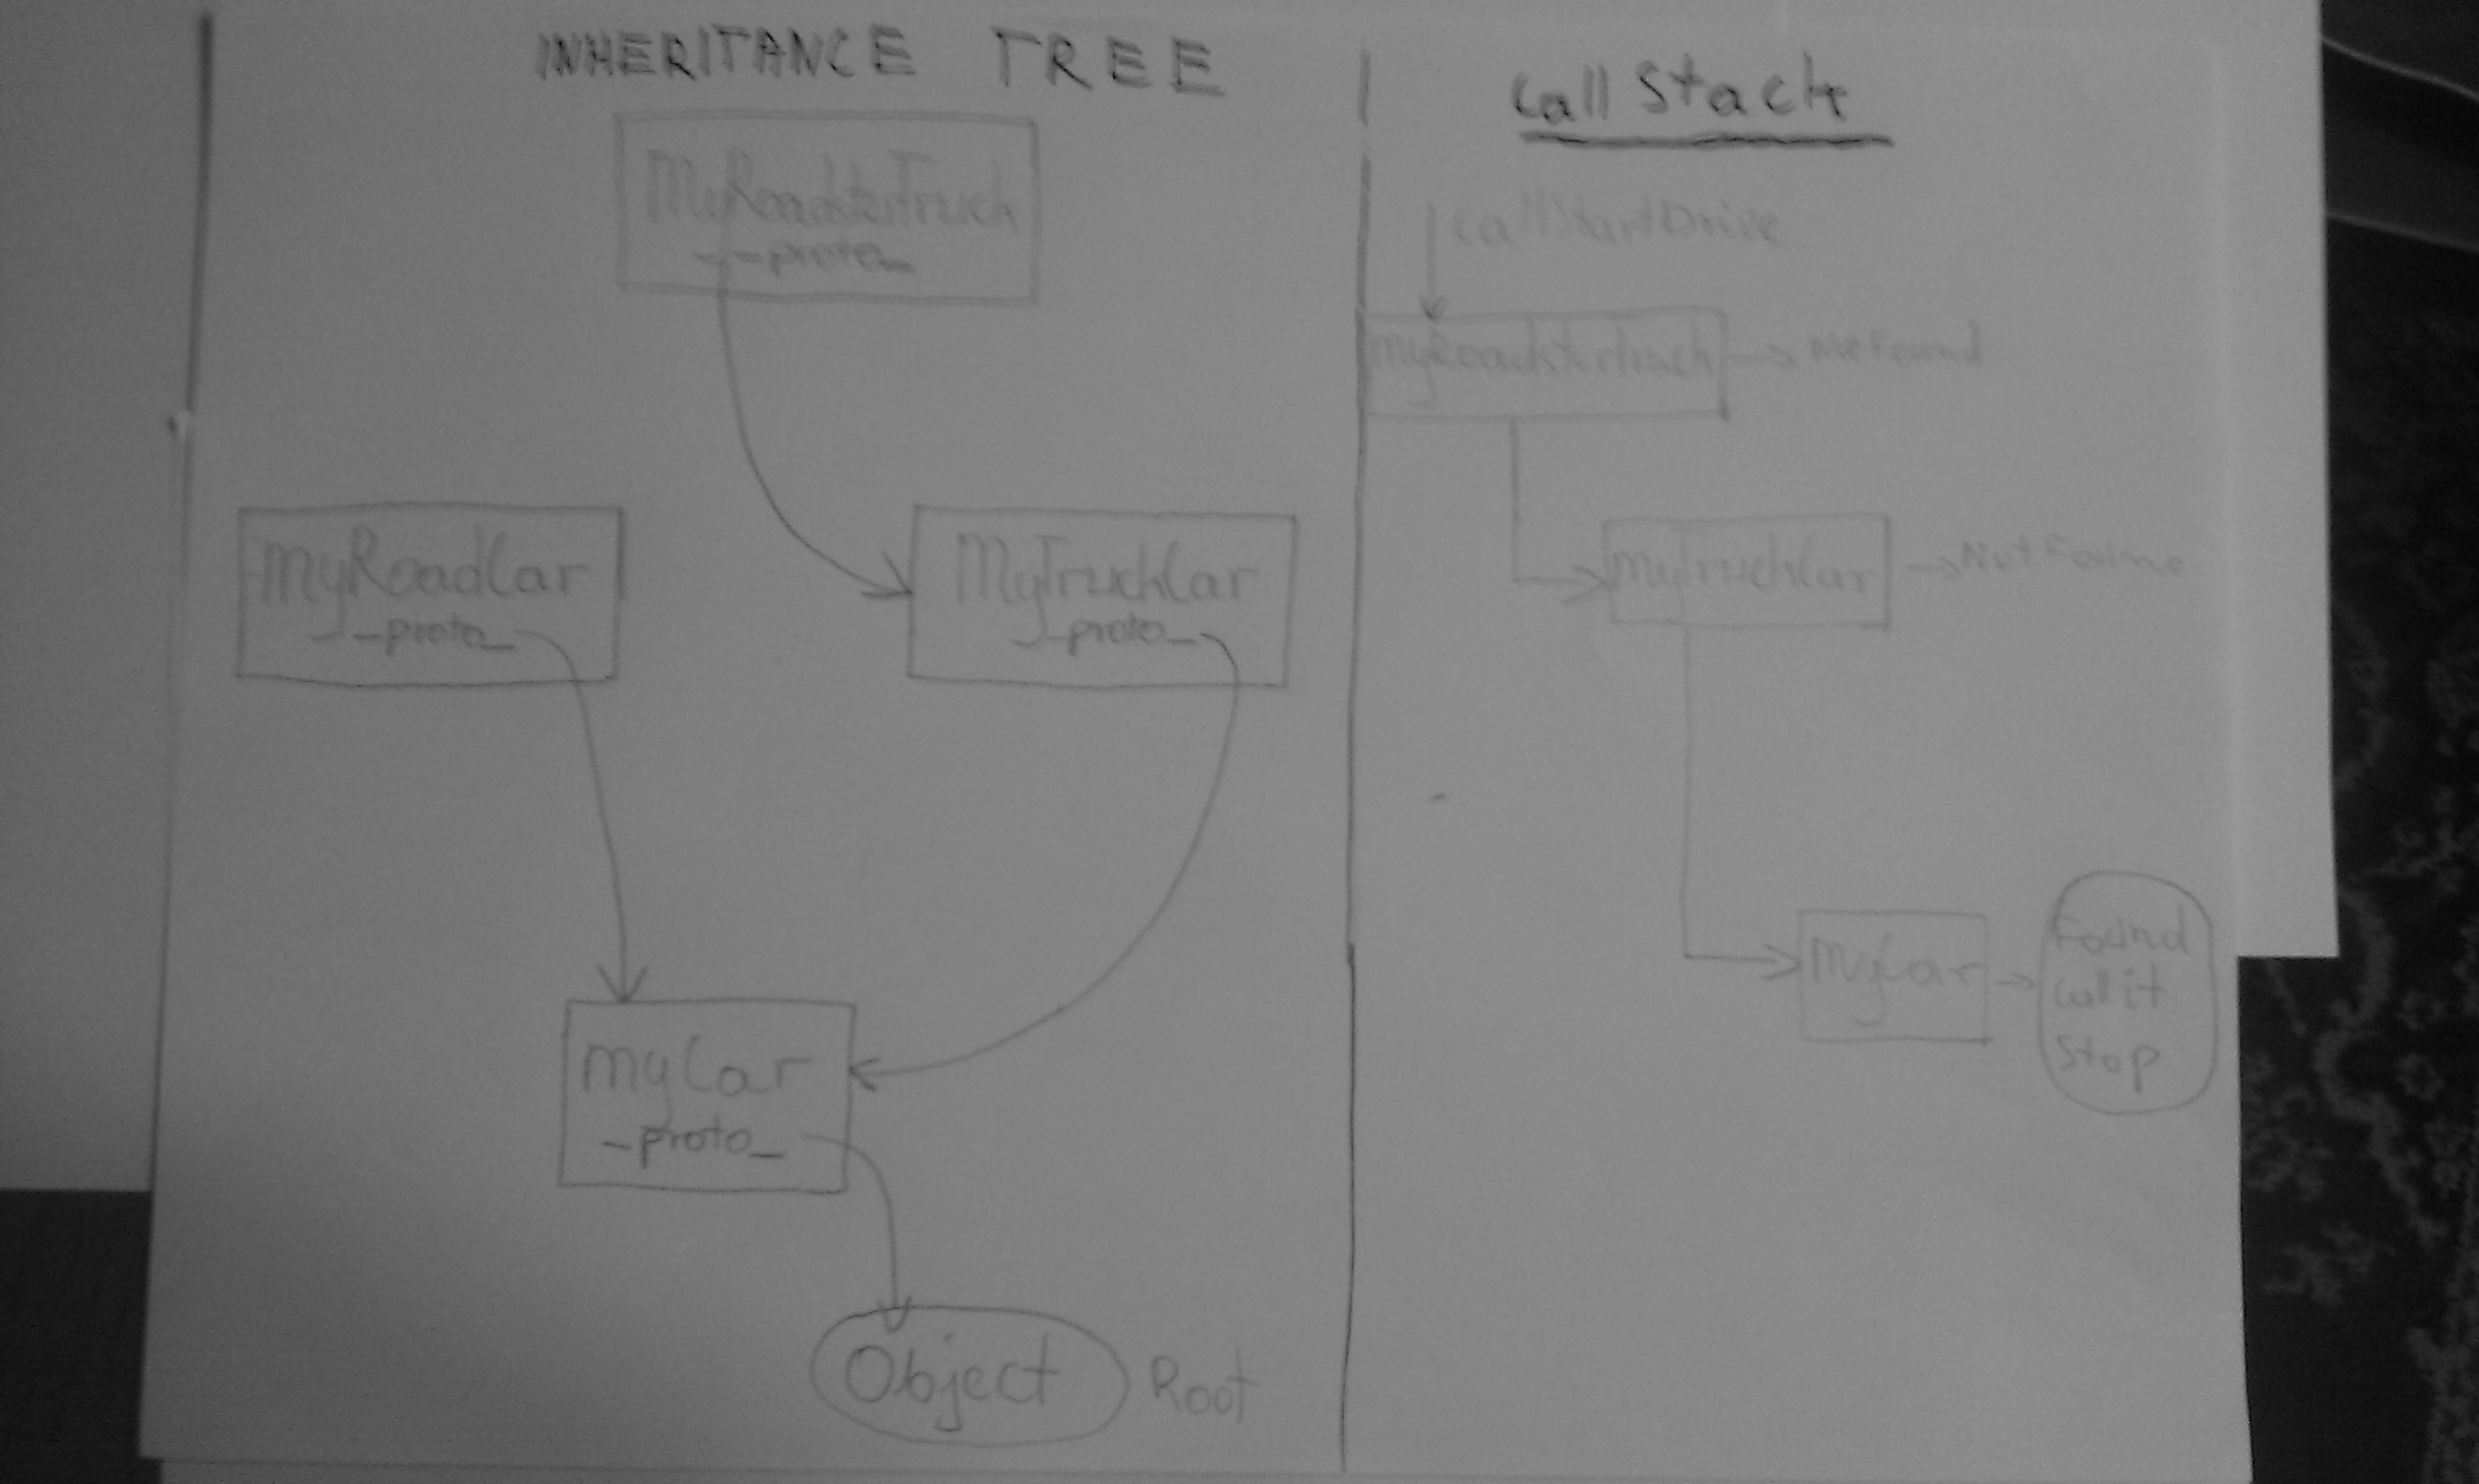 INHERITANCE TREE
MyRoadsterTruck
__proto__
MyRoadCar
__proto_
MyTruckCar
_proto_
myCar
_proto_
Object
Root
Call Stack
Call StartDrive
MyRoadsterTruck
Not Found
myTruckCar
Not Found
MyCar
Found
call it
Stop